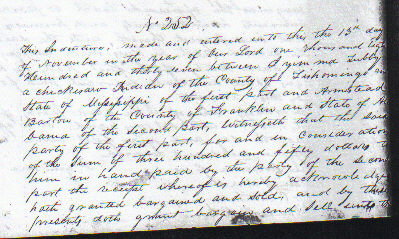 No 252
This Indenture, made and entered into this the 13th day
of November in the year of our Lord one thousand eig
Hundred and thirty seven between
a chickesaw Indian of the County of Tishomingo and
State of Mississippi of the first part and Armstead
Barton of the County of Franklin and State of A
bama of the second part, Witnesseth that the said
party of the first part, for and in consideration
of the sum of three hundred and fifty dollars to
him in hand paid by the party of the second
part the receipt whereof is hereby acknowledge
hath granted bargained and sold, and by these
presents doth grant bargain and sell unto th